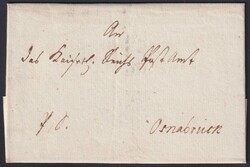 An
das Kaiserl. Reichs Post Amt
Osnabrück